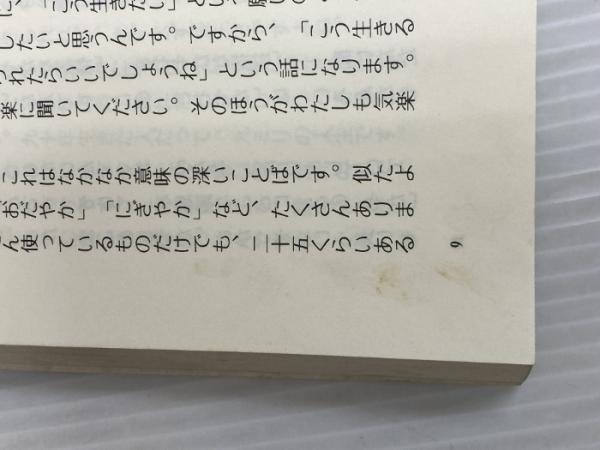 に、「こう生きたい」という願い
したいと思うんです。ですから、「こう生きる
れたらいいでしょうね」という話になります。
楽に聞いてください。そのほうがわたしも気楽
これはなかなか意味の深いことばです。似たよ
おだやか」「にぎやか」など、たくさんありま
ん使っているものだけでも、二十五くらいある
9